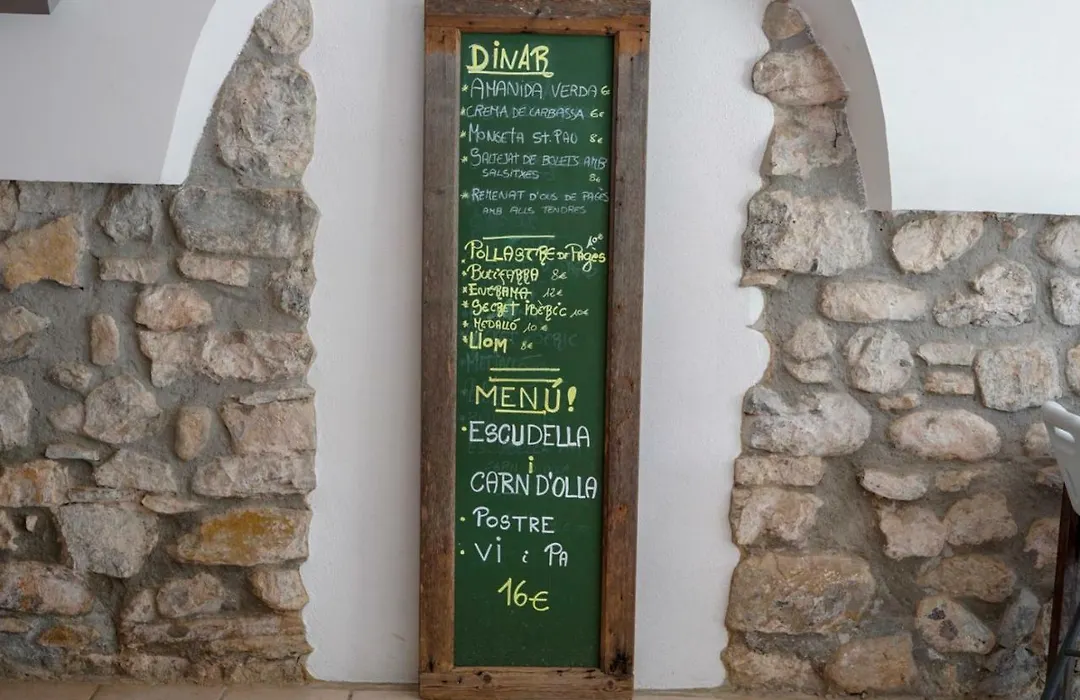 DINAR
* AMANIDA VERDA 6
* CREMA DE CARBASSA 6€
* MONGETA ST. PAU 8€
* SALTEJAT DE BOLETS AMB
SALSITXES 8€
* REMENAT D'OUS DE PAGÈS
AMB ALLS TENDRES
10€
POLLASTRE DE PAGÈS
* BUTIFARRA 8€
* ENTRAMA 12€
* SECRET IBÈRIC 10€
* MEDALLÓ 10€
* LLOM 8€
MENÚ!
· ESCUDELLA
i
CARN D'OLLA
· POSTRE
· VI i PA
16€